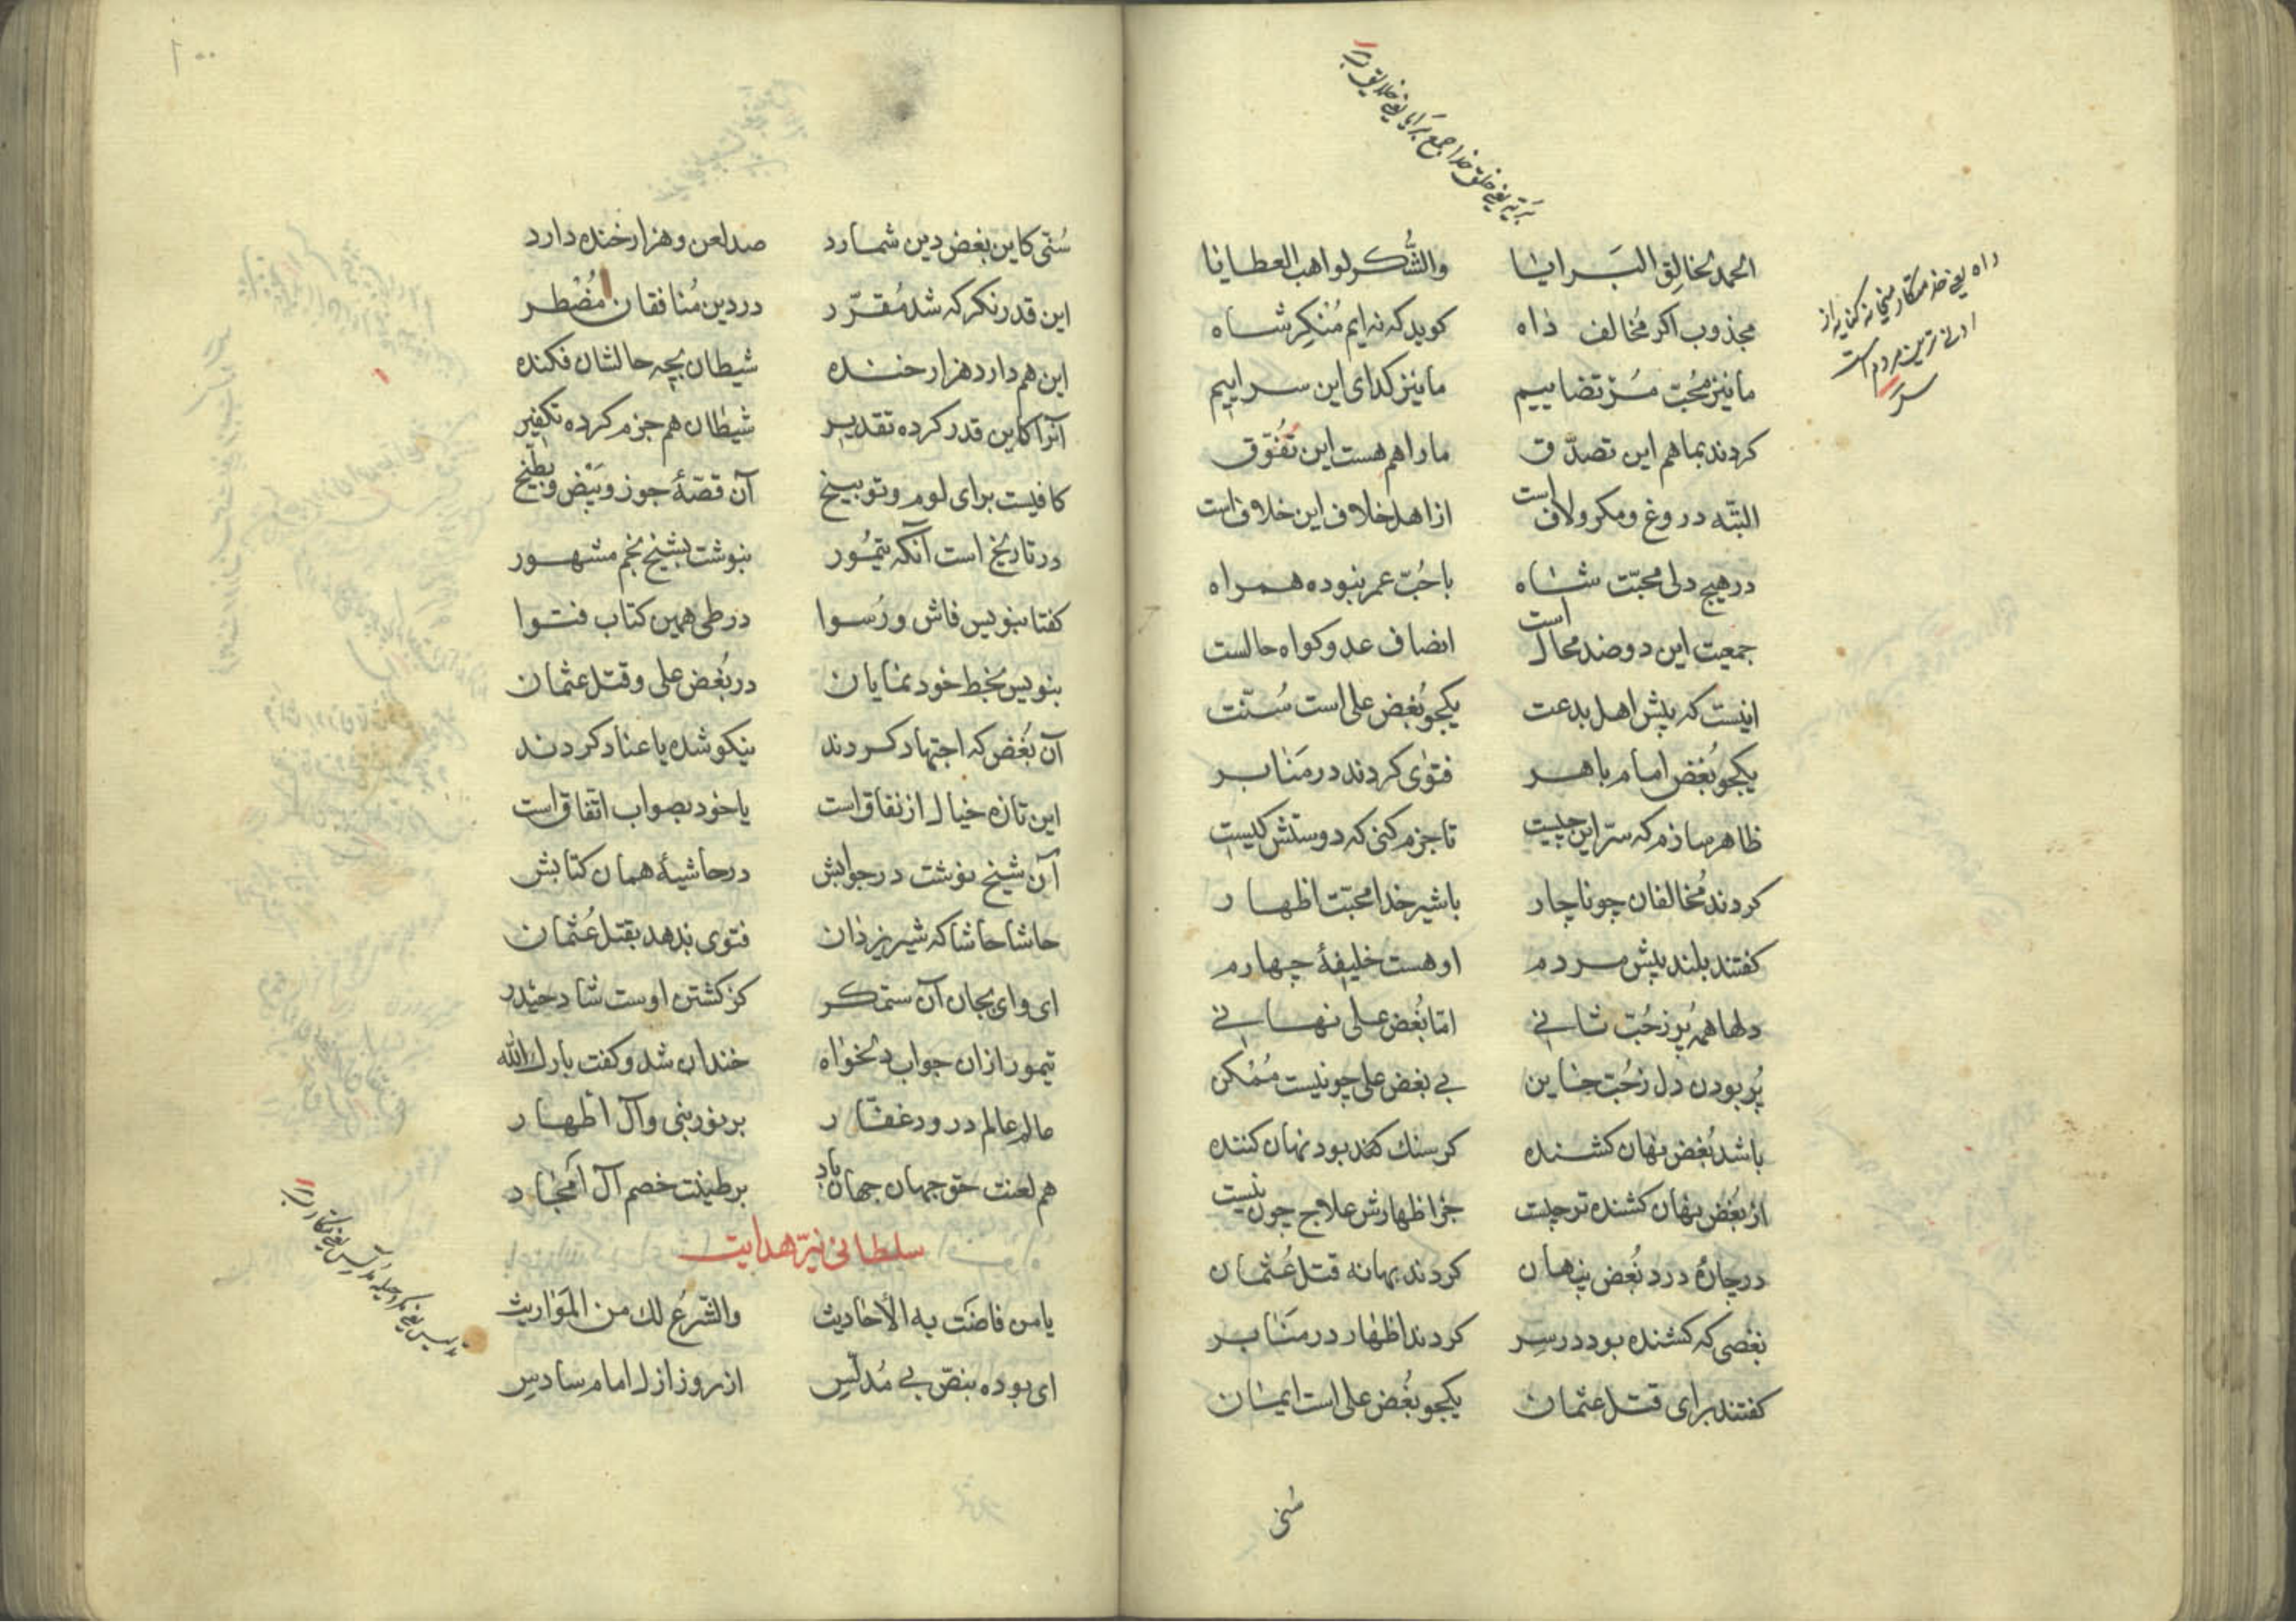 الحمد لخالق البرایا والشکر لواهب العطایا
مجذوب اکر مخالف داه کوید که نه ایم منکر شاه
ما نیز محب مرتضاییم ما نیز کدای این سراییم
کردند بما هم این تصدق ما را هم هست این تفوق
البته دروغ و مکر و لاف است از اهل خلاف این خلاف است
در هیچ دلی محبت شاه با حب عمر نبوده همراه
جمعیت این دو ضد محال است انصاف عدو کواه حالست
اینست که پیش اهل بدعت یکجو بغض علی است سنت
یکجو بغض امام باهر فتوی کردند در منابر
ظاهر سازم که سر این چیست تا جزم کنی که دوستش کیست
کردند مخالفان چو ناچار با شیر خدا محبت اظهار
کفتند بلند پیش مردم او هست خلیفهٔ چهارم
دلها همه پر ز حب ثانی اما بغض علی نهانی
پر بودن دل ز حب خاین بی بغض علی چو نیست ممکن
باشد بغض نهان کشنده کر سنک کند بود نهان کننده
از بغض نهان کشنده تر چیست جز اظهارش علاج چون نیست
در چارهٔ درد بغض پنهان کردند بهانه قتل عثمان
بغضی که کشنده بود در سر کردند اظهار در منابر
کفتند برای قتل عثمان یکجو بغض علی است ایمان
سنی
بریه یعنی خلق خدا جمع برایا یعنی خلایق
داه یعنی خدمتکار کنایه از
ادنی ترین مردم است
سنی کاین بغض دین شمارد صد لعن و هزار خنده دارد
این قدر نکر که شد مقرر در دین منافقان مضطر
این هم دارد هزار خنده شیطان بچه حالشان فکنده
آنرا کاین قدر کرده تقدیر شیطان هم جزم کرده تکفیر
کافیست برای لوم و توبیخ آن قصهٔ جوز و بیض و بطیخ
در تاریخ است آنکه تیمور بنوشت بشیخ نجم مشهور
کفتا بنویس فاش و رسوا در طی همین کتاب فتوا
بنویس بخط خود نمایان در بغض علی و قتل عثمان
آن بغض که اجتهاد کردند نیکو شده یا عناد کردند
این تازه خیال از نفاق است یا خود بصواب اتفاق است
آن شیخ نوشت در جوابش در حاشیهٔ همان کتابش
حاشا حاشا که شیر یزدان فتوی ندهد بقتل عثمان
ای وای بجان آن ستمکر کز کشتن اوست شاد حیدر
تیمور ازان جواب دلخواه خندان شد و کفت بارک الله
عالم عالم درود غفار بر نور نبی و آل اطهار
هم لعنت حق جهان جهان باد بر طینت خصم آل امجاد
سلطانی نیر هدایت
یا من فاضت به الأحادیث والشرع لک من المواریث
ای بوده بنص بی مدلس از روز ازل امام سادس
تدلیس یعنی مکر و حیله مدلس یعنی